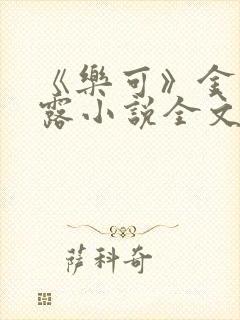 《樂可》金
露小說全文
薩科奇